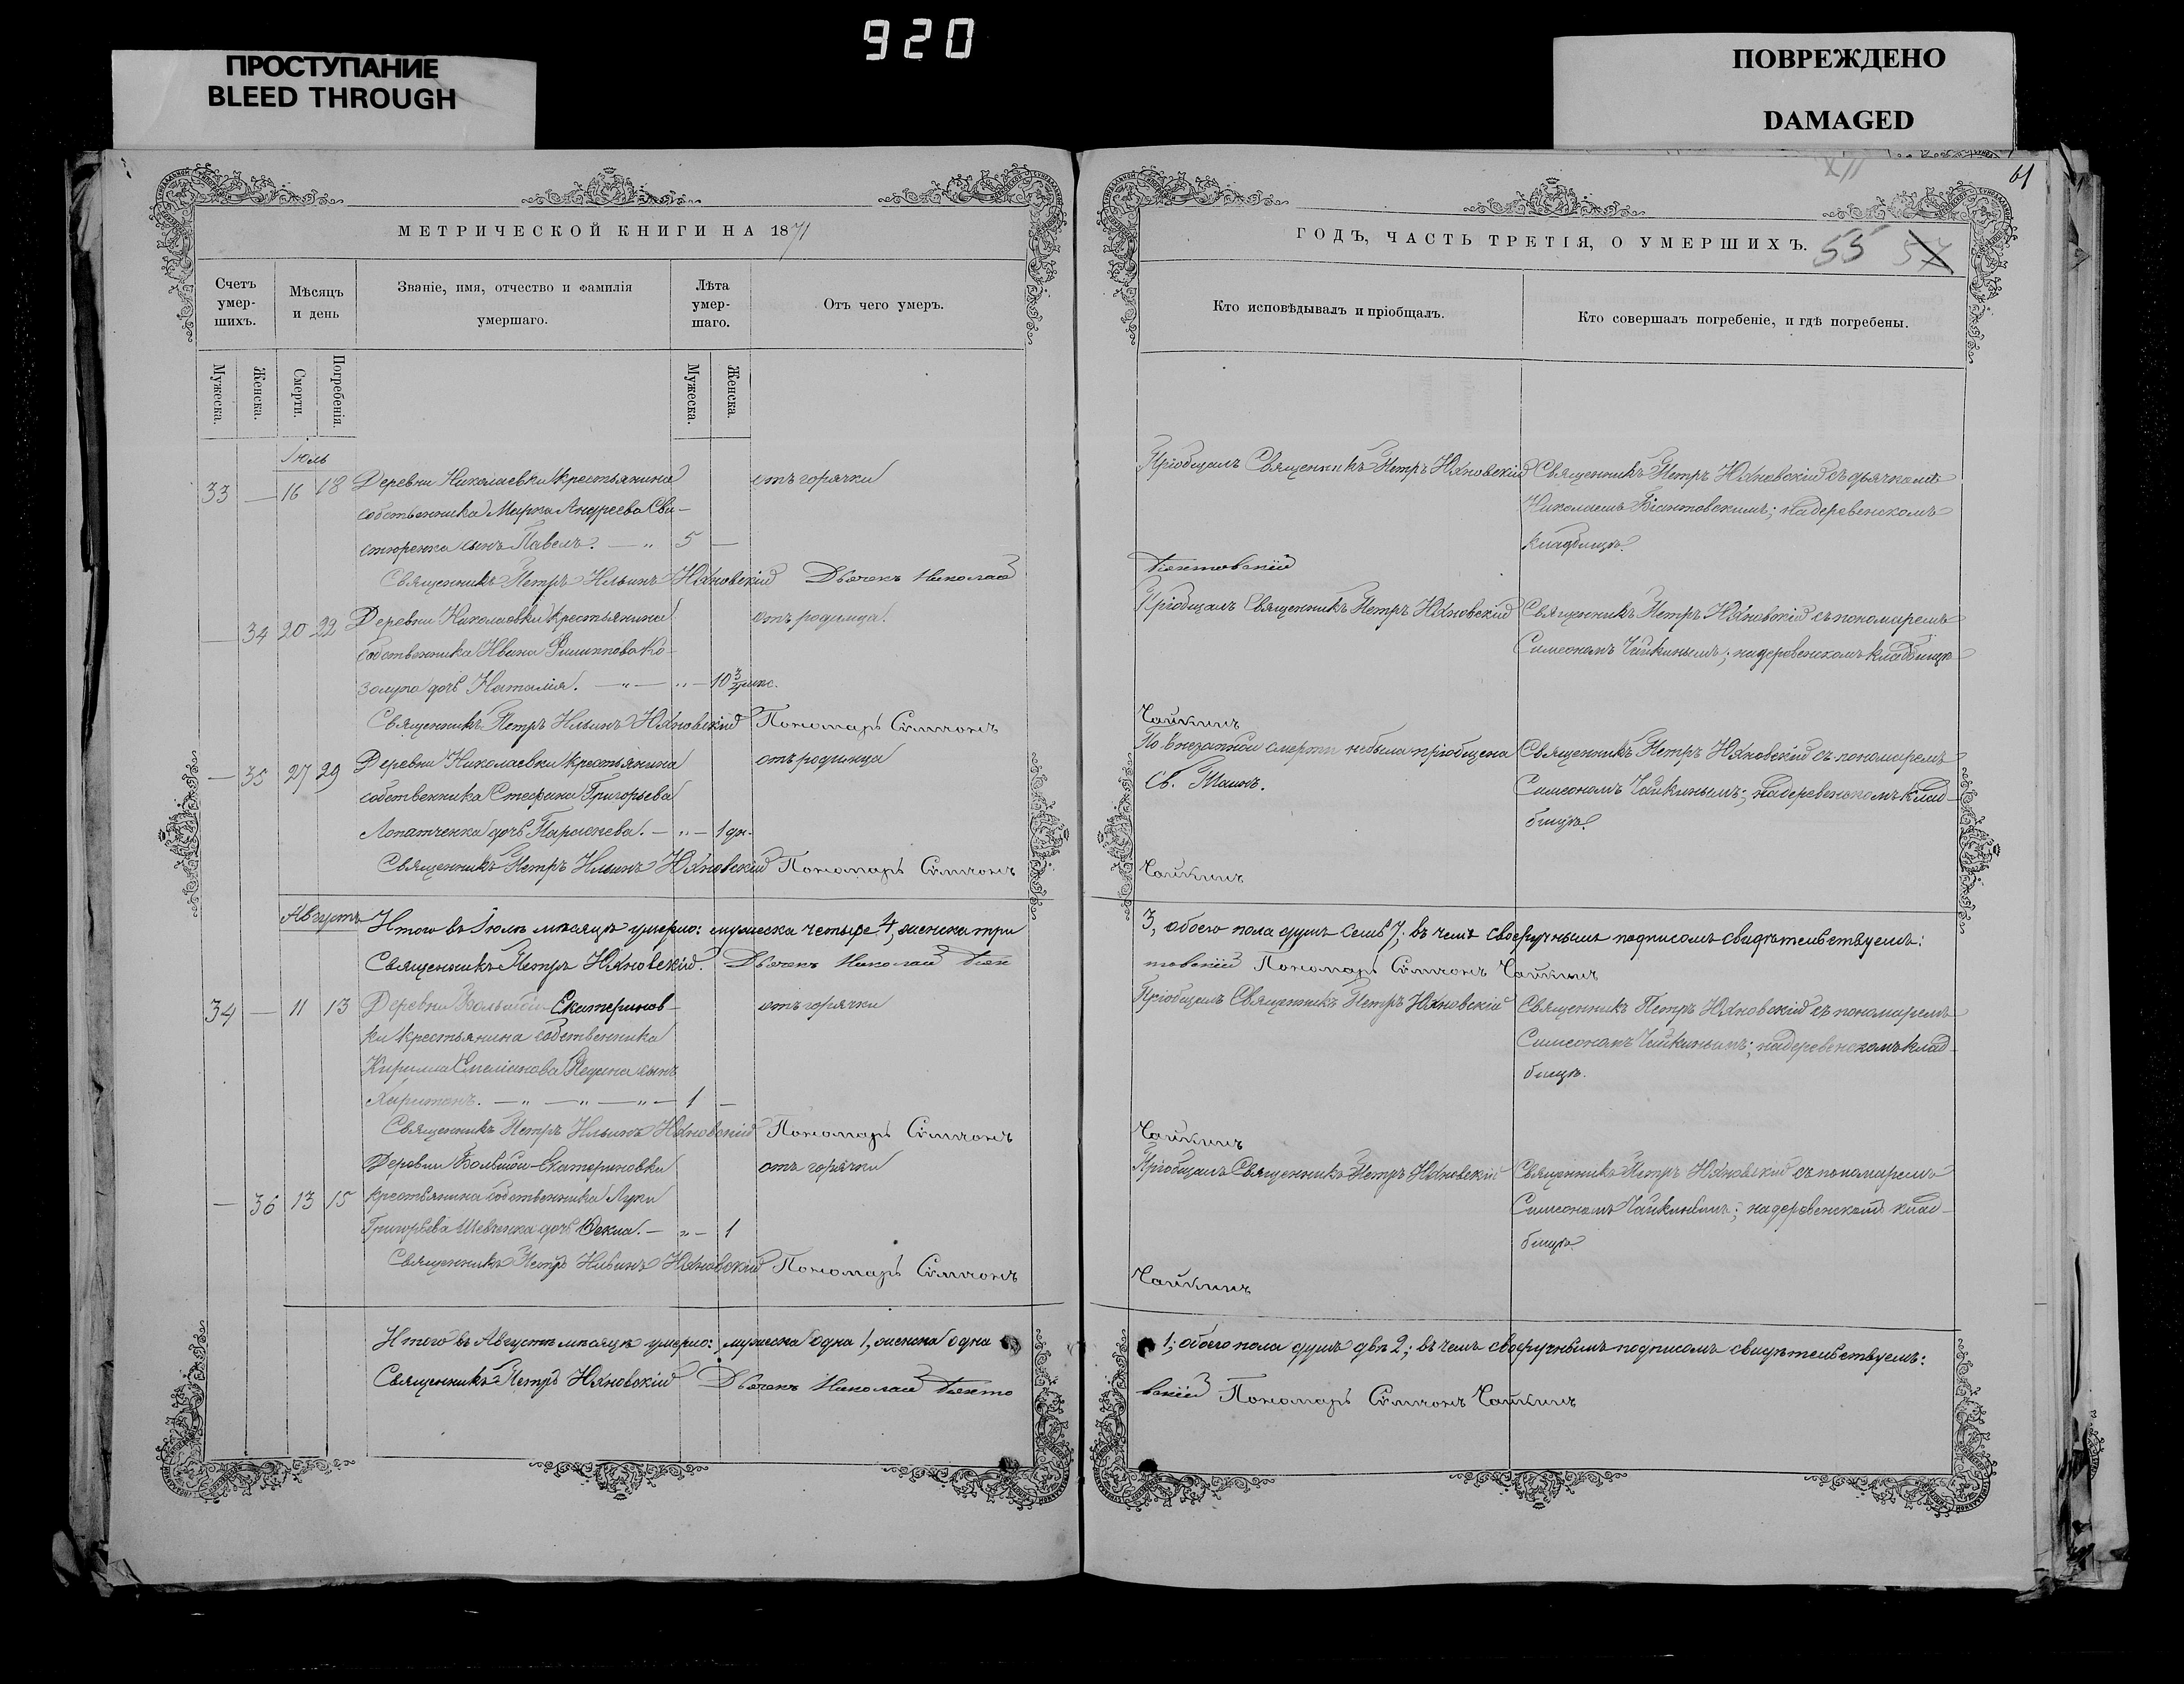 920
ПРОСТУПАНИЕ
BLEED THROUGH
ПОВРЕЖДЕНО
DAMAGED
XII
61
МЕТРИЧЕСКОЙ КНИГИ НА 1871
Счетъ умер-шихъ.
Мѣсяцъ и день
Званіе, имя, отчество и фамилія умершаго.
Лѣта умер-шаго.
Отъ чего умеръ.
Мужеска.
Женска.
Смерти.
Погребенія.
Мужеска.
Женска.
Іюль
33 — 16 18 Деревни Николаевки крестьянина отъ горячки
собственника Марка Андреева Сви-
стюренка сынъ Павелъ. — „ 5 —
Священникъ Петръ Ильинъ Юхновскій Дьячекъ Николай
— 34 20 22 Деревни Николаевки крестьянина отъ родимца.
собственника Ивана Филиппова Ко-
золупа дочь Наталія. — „ — „ — 10 3/4 мис.
Священникъ Петръ Ильинъ Юхновскій Пономарь Сѵмеонъ
— 35 27 29 Деревни Николаевки крестьянина отъ родимца
собственника Стефана Григорьева
Лопатченка дочь Параскева. — „ — 1 дн.
Священникъ Петръ Ильинъ Юхновскій Пономарь Сѵмеонъ
Августъ
Итого въ Іюлѣ мѣсяцѣ умерло: мужеска четыре 4, женска три
Священникъ Петръ Юхновскій. Дьячекъ Николай
34 — 11 13 Деревни Большой-Екатеринов- отъ горячки
ки крестьянина собственника
Кирилла Емельянова сынъ
Харитонъ. — „ — „ — „ — 1 —
Священникъ Петръ Ильинъ Юхновскій Пономарь Сѵмеонъ
Деревни Большой-Екатериновки отъ горячки
— 36 13 15 крестьянина собственника Луки
Григорьева Шевченка дочь Ѳекла. — „ — 1
Священникъ Петръ Ильинъ Юхновскій Пономарь Сѵмеонъ
Итого въ Августѣ мѣсяцѣ умерло: мужеска одна 1, женска одна
Священникъ Петръ Юхновскій Дьячекъ Николай
ГОДЪ, ЧАСТЬ ТРЕТІЯ, О УМЕРШИХЪ. 55 57
Кто исповѣдывалъ и пріобщалъ.
Кто совершалъ погребеніе, и гдѣ погребены.
Пріобщалъ Священникъ Петръ Юхновскій Священникъ Петръ Юхновскій съ дьячкомъ
Николаемъ; на деревенскомъ
кладбищѣ.
Пріобщалъ Священникъ Петръ Юхновскій Священникъ Петръ Юхновскій съ пономаремъ
Симеономъ Чайкинымъ; на деревенскомъ кладбищѣ
Чайкинъ
По внезапной смерти небыла пріобщена Священникъ Петръ Юхновскій съ пономаремъ
Св. Таинъ. Симеономъ Чайкинымъ; на деревенскомъ клад-
бищѣ.
Чайкинъ
3, обоего пола душъ семь 7; въ чемъ своеручнымъ подписомъ свидѣтельствуемъ:
Пономарь Сѵмеонъ Чайкинъ
Пріобщалъ Священникъ Петръ Юхновскій Священникъ Петръ Юхновскій съ пономаремъ
Симеономъ Чайкинымъ; на деревенскомъ клад-
бищѣ.
Чайкинъ
Пріобщалъ Священникъ Петръ Юхновскій Священникъ Петръ Юхновскій съ пономаремъ
Симеономъ Чайкинымъ; на деревенскомъ клад-
бищѣ.
Чайкинъ
1; обоего пола душъ двѣ 2; въ чемъ своеручнымъ подписомъ свидѣтельствуемъ:
Пономарь Сѵмеонъ Чайкинъ